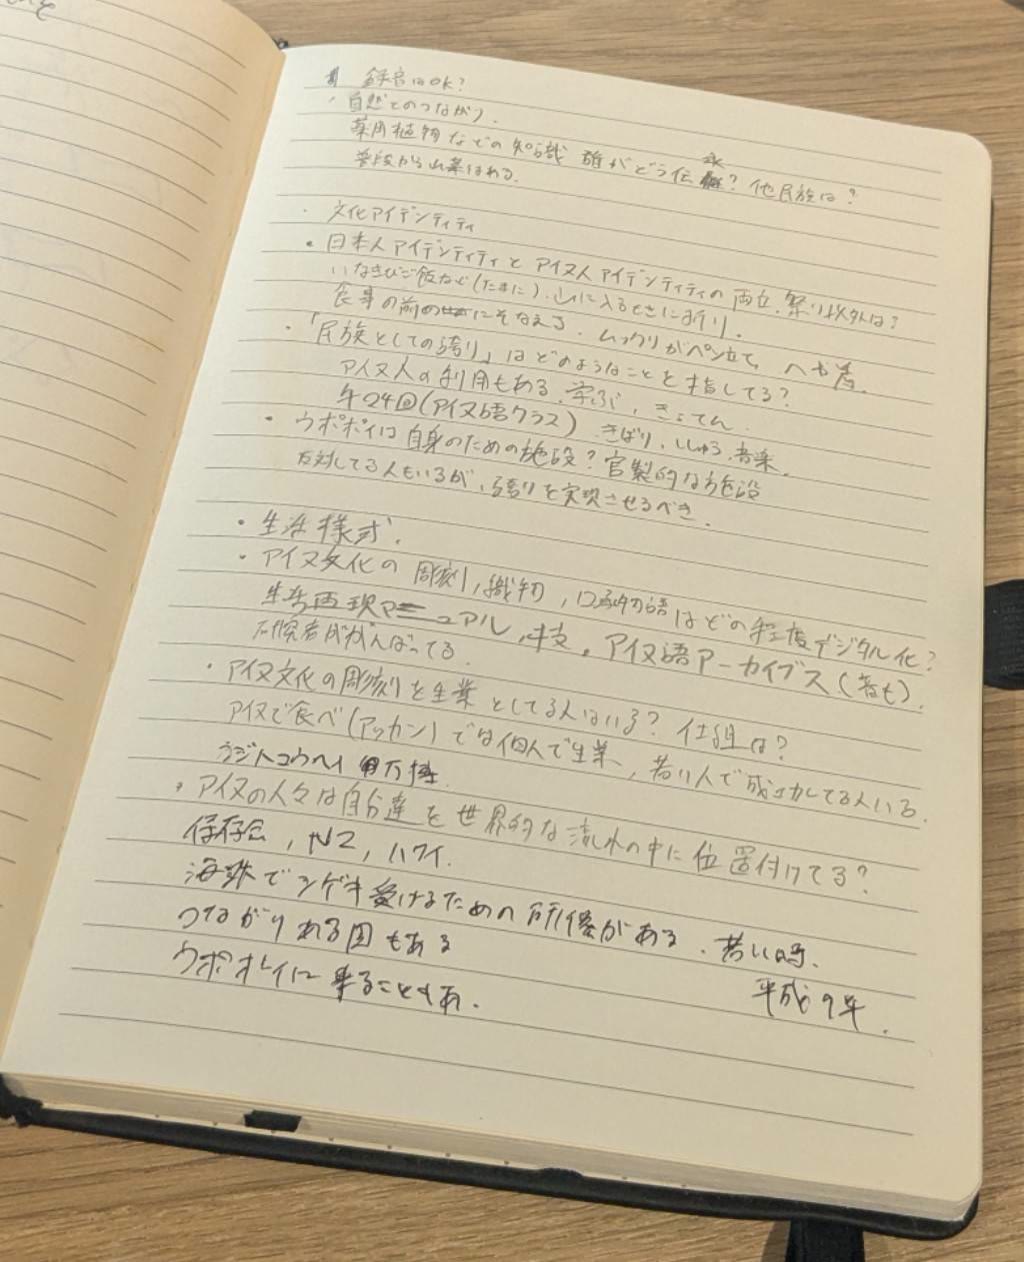 録音はOK?
・自然とのつながり.
薬用植物などの知識 誰がどう伝承? 他民族は?
普段から山菜はある.
・文化アイデンティティ
・日本人アイデンティティとアイヌ人アイデンティティの両立. 祭り以外は?
いなきびご飯など(たまに). 山に入るときには祈り.
食事の前にそなえる. ムックリがペン立て,
・「民族としての誇り」はどのようなことを指してる?
アイヌ人の利用もある. 学ぶ, きょてん.
年24回(アイヌ語クラス) きぼり, ししゅう, 音楽.
・ウポポイは自身のための施設? 官製的な施設
反対してる人もいるが, 誇りを実現させるべき.
・生活様式.
・アイヌ文化の彫刻, 織物, 口承物語はどの程度デジタル化?
再現マニュアル, アイヌ語アーカイブス(音も).
研究者ががんばってる.
・アイヌ文化の彫刻を生業としてる人はいる? 仕組は?
アイヌで食べ(アッカン)では個人で生業, 若い人で成功してる人いる.
万博.
・アイヌの人々は自分達を世界的な流れの中に位置付けてる?
保存会, NZ, ハワイ.
海外でシゲキ受けるための研修がある. 若い時.
つながりある国もある
ウポポイに来ることもあ.
平成9年.